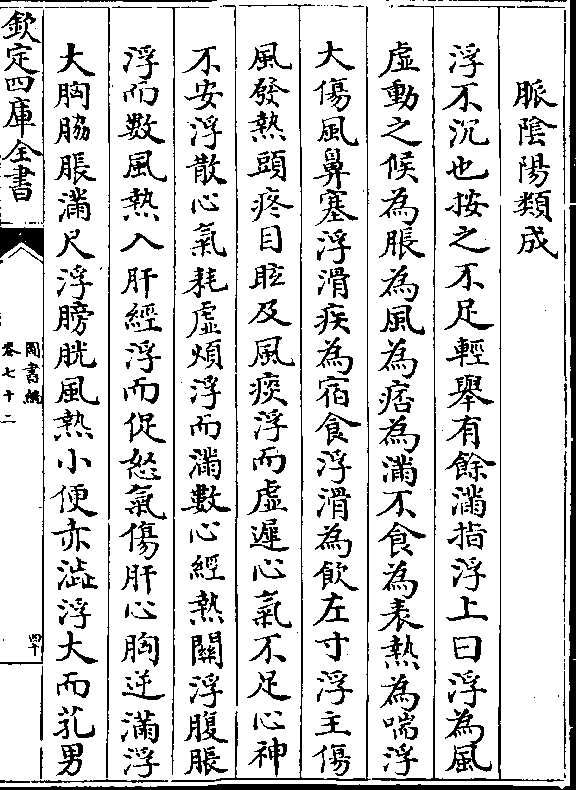 脈陰陽類成
浮不沉也按之不足輕舉有餘滿指浮上曰浮為風
虛動之候為脹為風為痞為滿不食為表熱為喘浮
大傷風鼻塞浮滑疾為宿食浮滑為飲左寸浮主傷
風發熱頭疼目眩及風痰浮而虛遲心氣不足心神
不安浮散心氣耗虛煩浮而滿數心經熱關浮腹脹
浮而數風熱入肝經浮而促怒氣傷肝心胸逆滿浮
大胸脇脹滿尺浮膀胱風熱小便赤澁浮大而芤男
欽定四庫全書
圖書編
卷七十二
四十